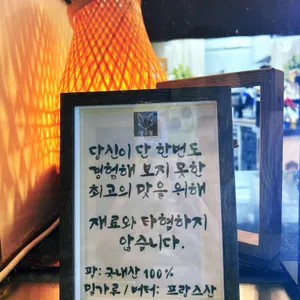 당신이 단 한번도
경험해 보지 못한
최고의 맛을 위해
재료와 타협하지
않습니다.
팥: 국내산 100%
밀가루/버터: 프랑스산